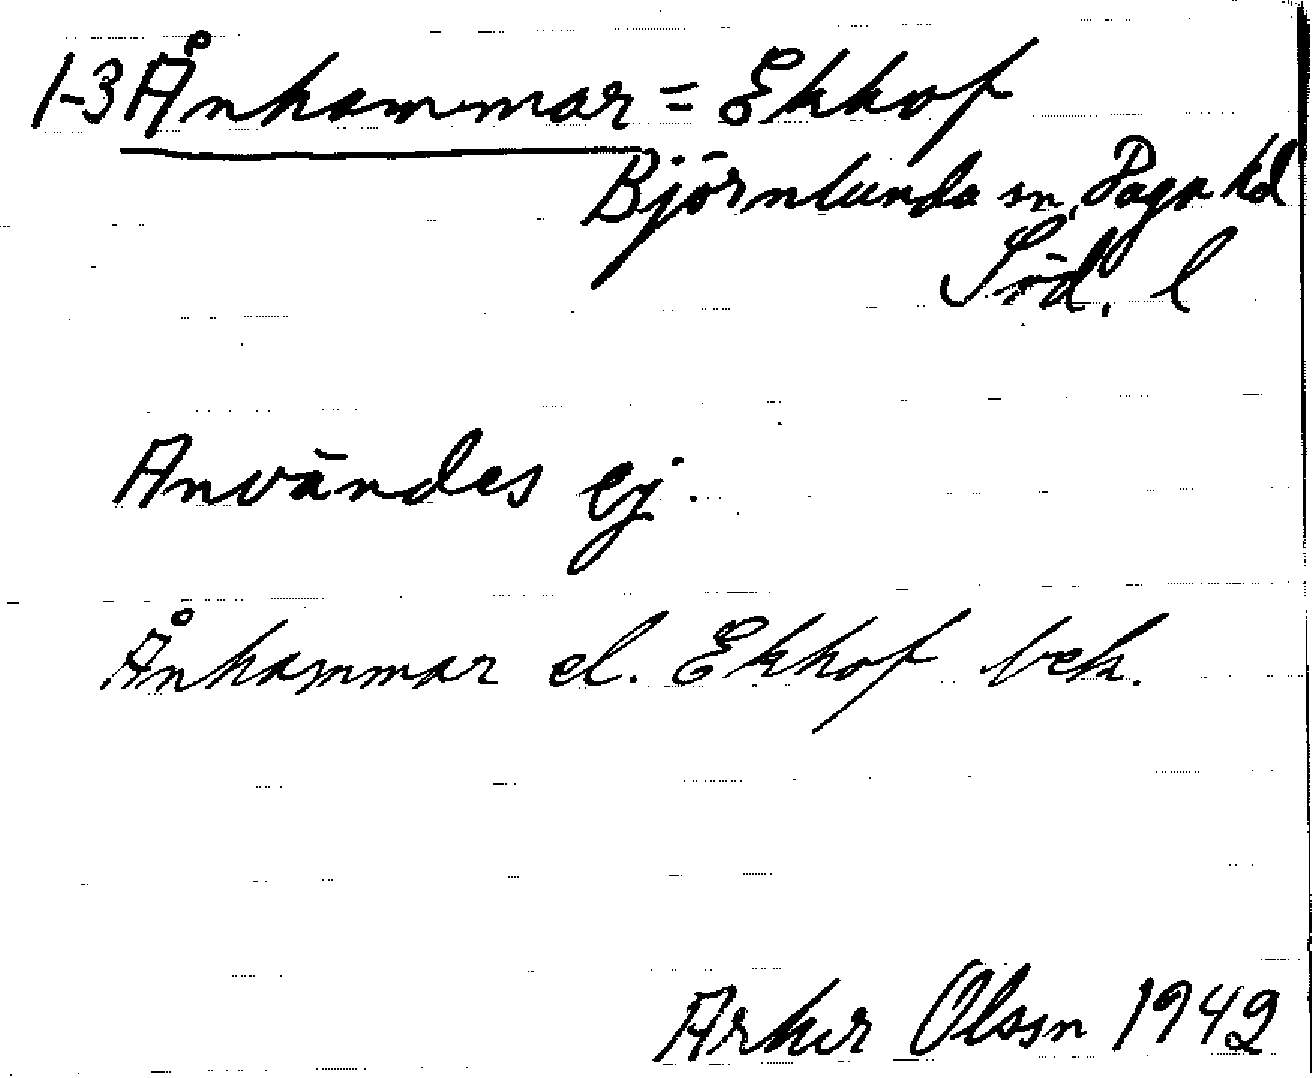 1-3 Ånhammar = Ekhof
Björnlunda sn, Daga hd
Söd. l
Användes ej.
Ånhammar el. Ekhof bek.
Olssn 1942